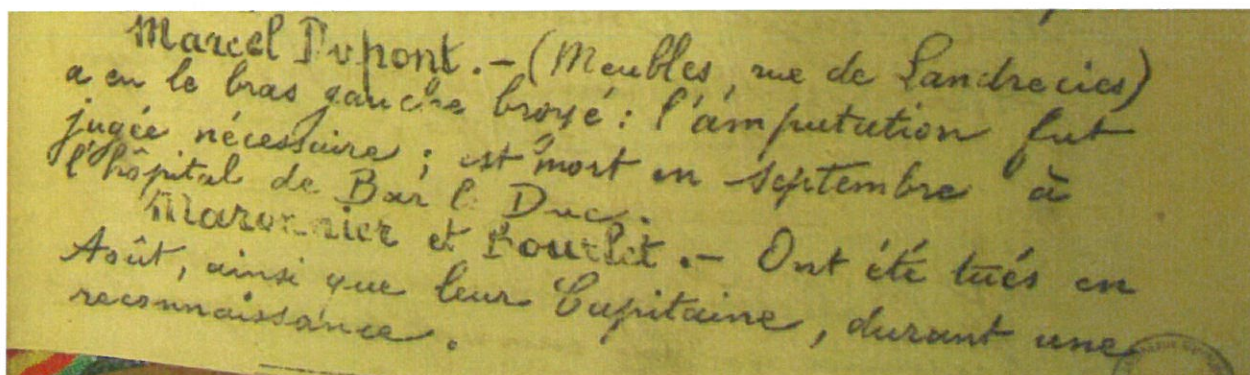 Marcel Dupont. - (Meubles, rue de Landrecies)
a eu le bras gauche broyé : l'amputation fut
jugée nécessaire ; est mort en septembre à
l'hôpital de Bar l Duc.
Maronnier et Bourlet. - Ont été tués en
Août, ainsi que leur Capitaine, durant une
reconnaissance.